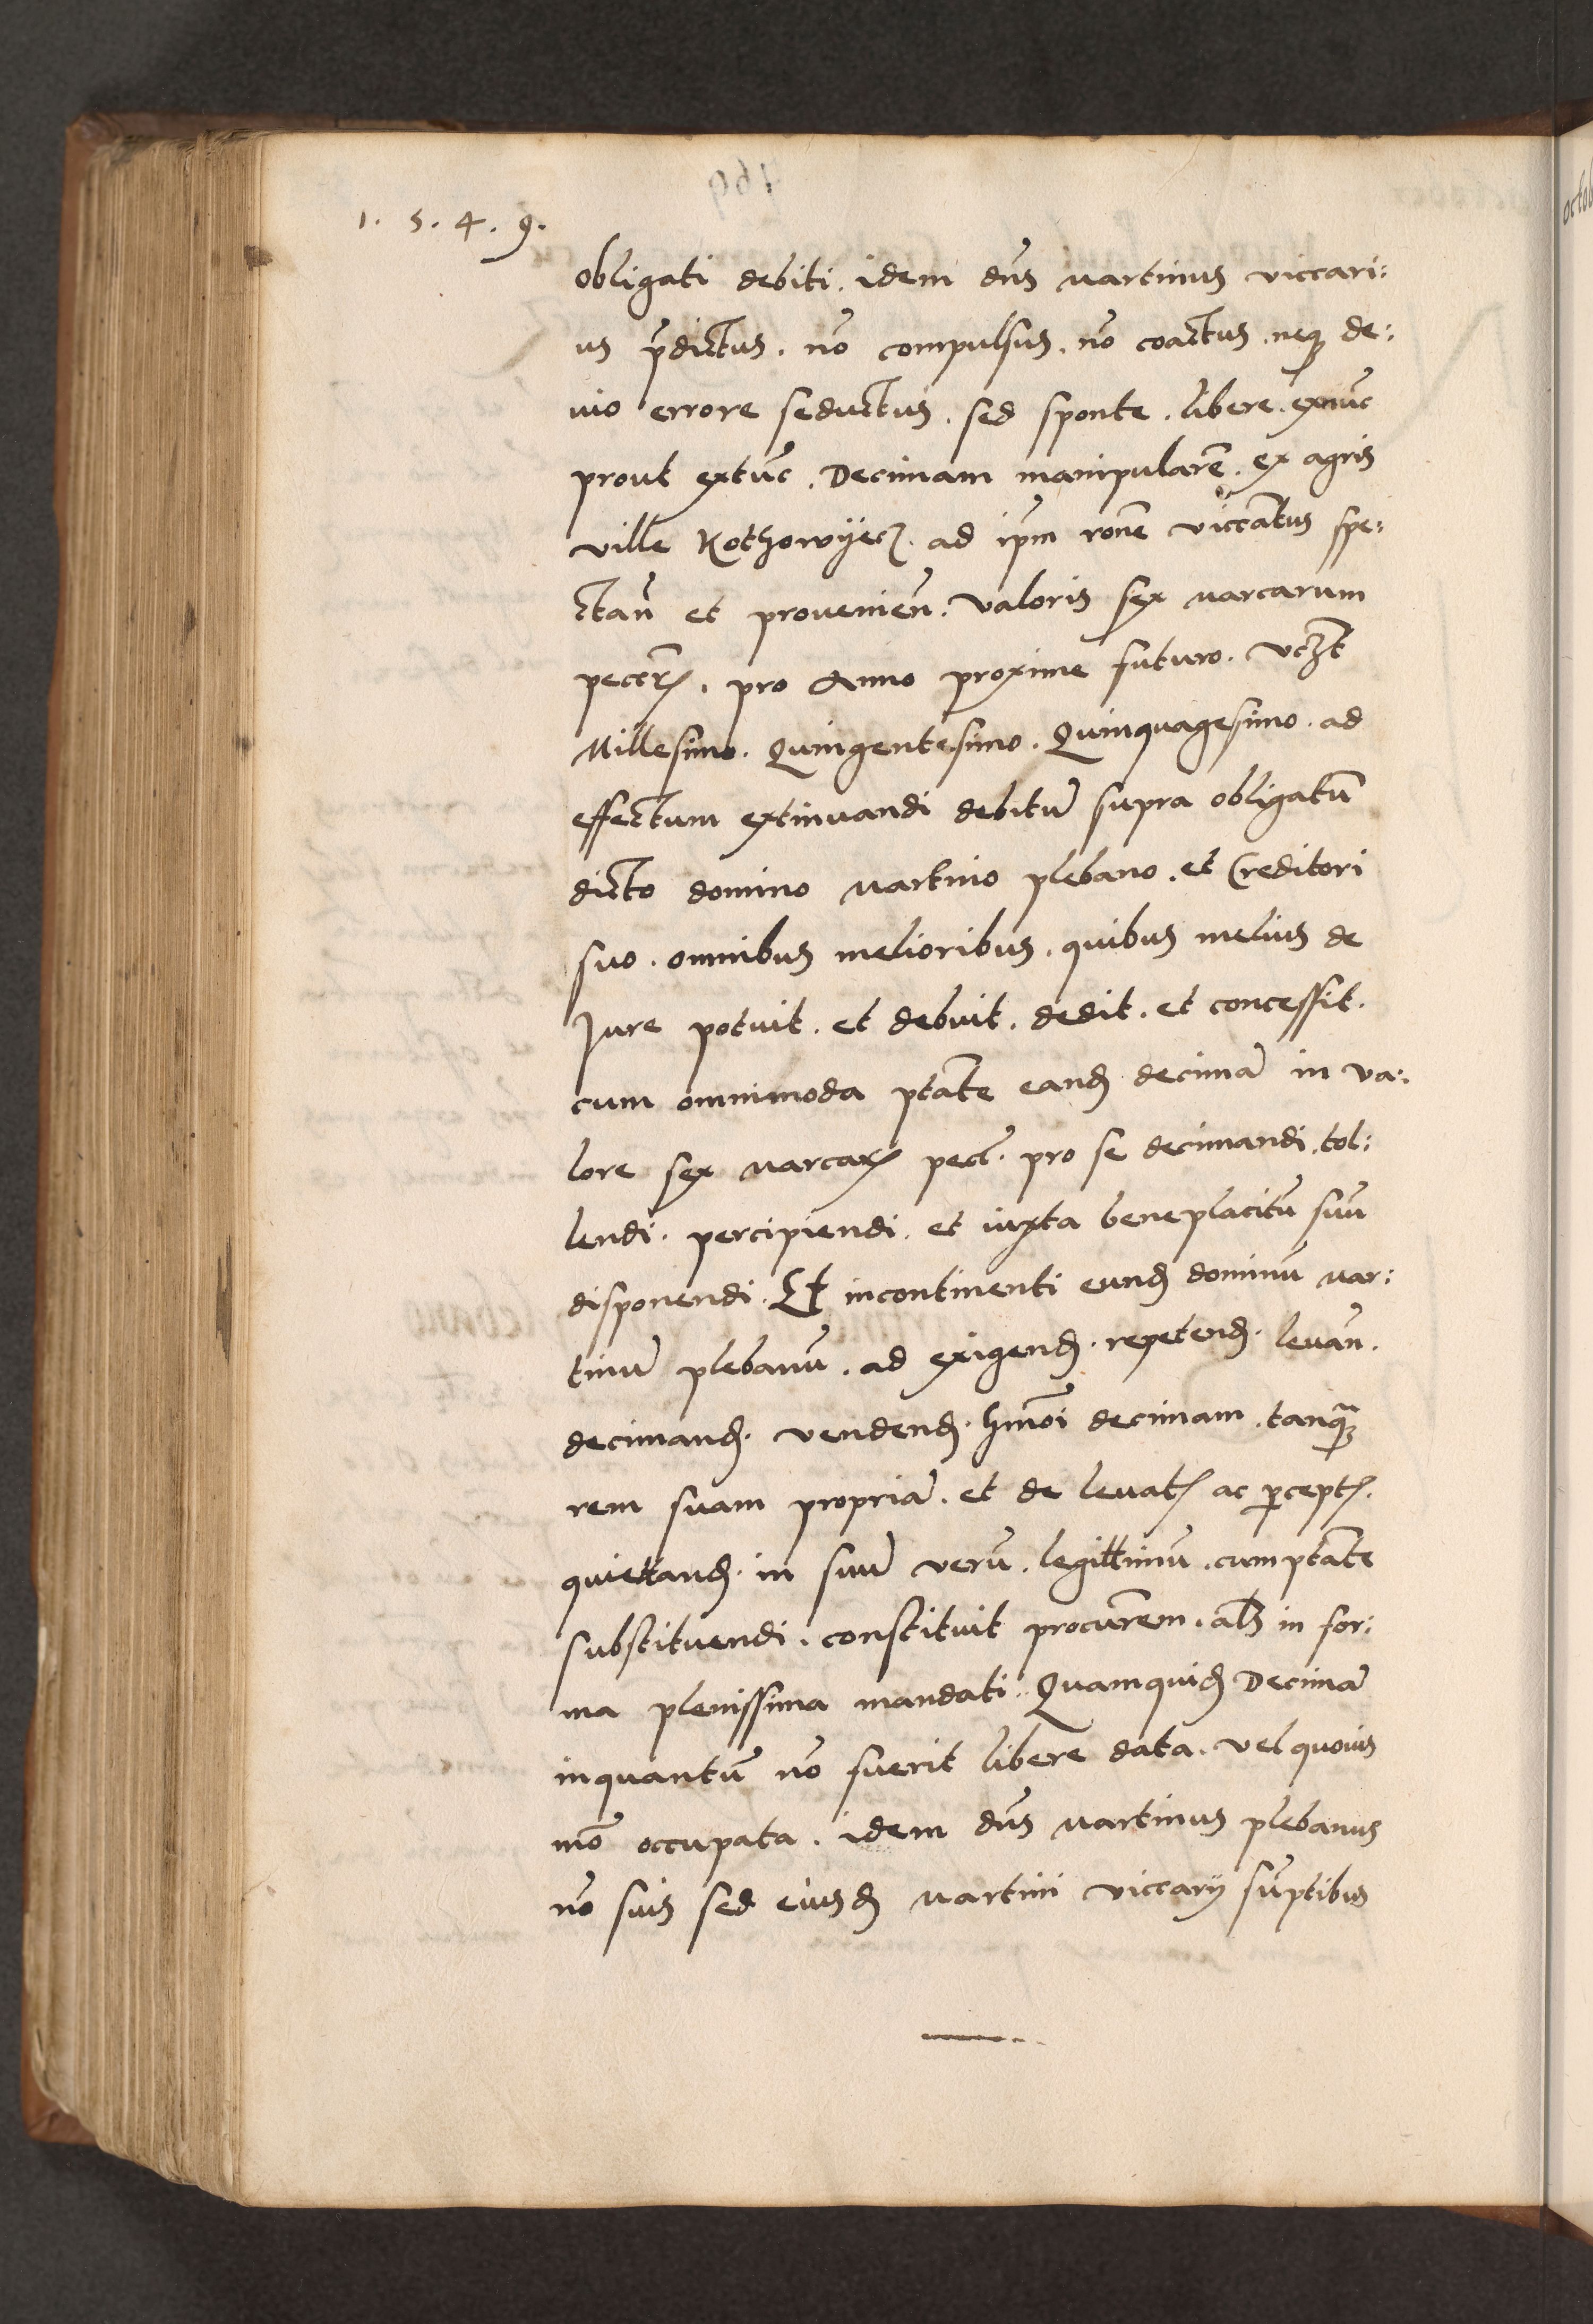 1. 5. 4. 9.
obligati debiti. idem dn̄s Martinus viccari:
us p̄dictus. nō compulsus. nō coactus. neqꝫ de:
vio errore seductus. sed sponte. libere. exnūc
prout extūc. Decimam manipularē. ex agris
ville Kothowÿecz. ad ip̄m rōne viccātus spe:
ctan̄ et provenien̄. valoris sex marcarum
peccꝝ. pro Anno proxime futuro. vcꝫt
Millesimo. Quingentesimo. Quinquagesimo. ad
effectum extinuandi debitū supra obligatū
dicto domino Martino plebano. et Creditori
suo. omnibus melioribus. quibus melius de
Jure potuit. et debuit. dedit. et concessit.
cum omnimoda ptāte eand̄ decimā in va:
lore sex marcaꝝ pecc̄. pro se decimandi. tol:
lendi. percipiendi. et iuxta beneplacitū suū
disponendi. Et incontinenti eund̄ dominū Mar:
tinū plebanū. ad exigend̄. repetend̄. levan̄.
decimand̄. vendend̄. hmōi decimam. tanqꝫ
rem suam propriā. et de levatꝭ ac ꝑceptꝭ.
quiettand̄. in suū verū. legittimū. cum ptāte
substituendi. constituit procūrem. als̄ in for:
ma plenissima mandati. Quamquid̄ Decimā
inquantū nō fuerit libere data. vel quovis
mō occupata. idem dn̄s Martinus plebanus
nō suis sed eiusd̄ Martini viccarÿ sūptibus